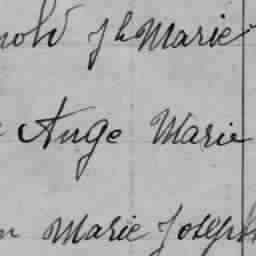 nold Jh Marie
Ange Marie
Marie Joseph